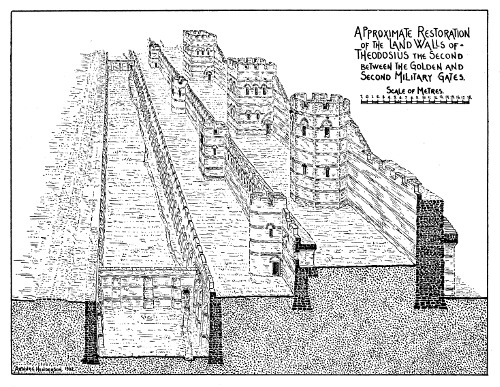 APPROXIMATE RESTORATION
OF THE LAND WALLS OF-
THEODOSIUS THE SECOND
BETWEEN THE GOLDEN AND
SECOND MILITARY GATES.
SCALE OF METRES.
HENDERSON